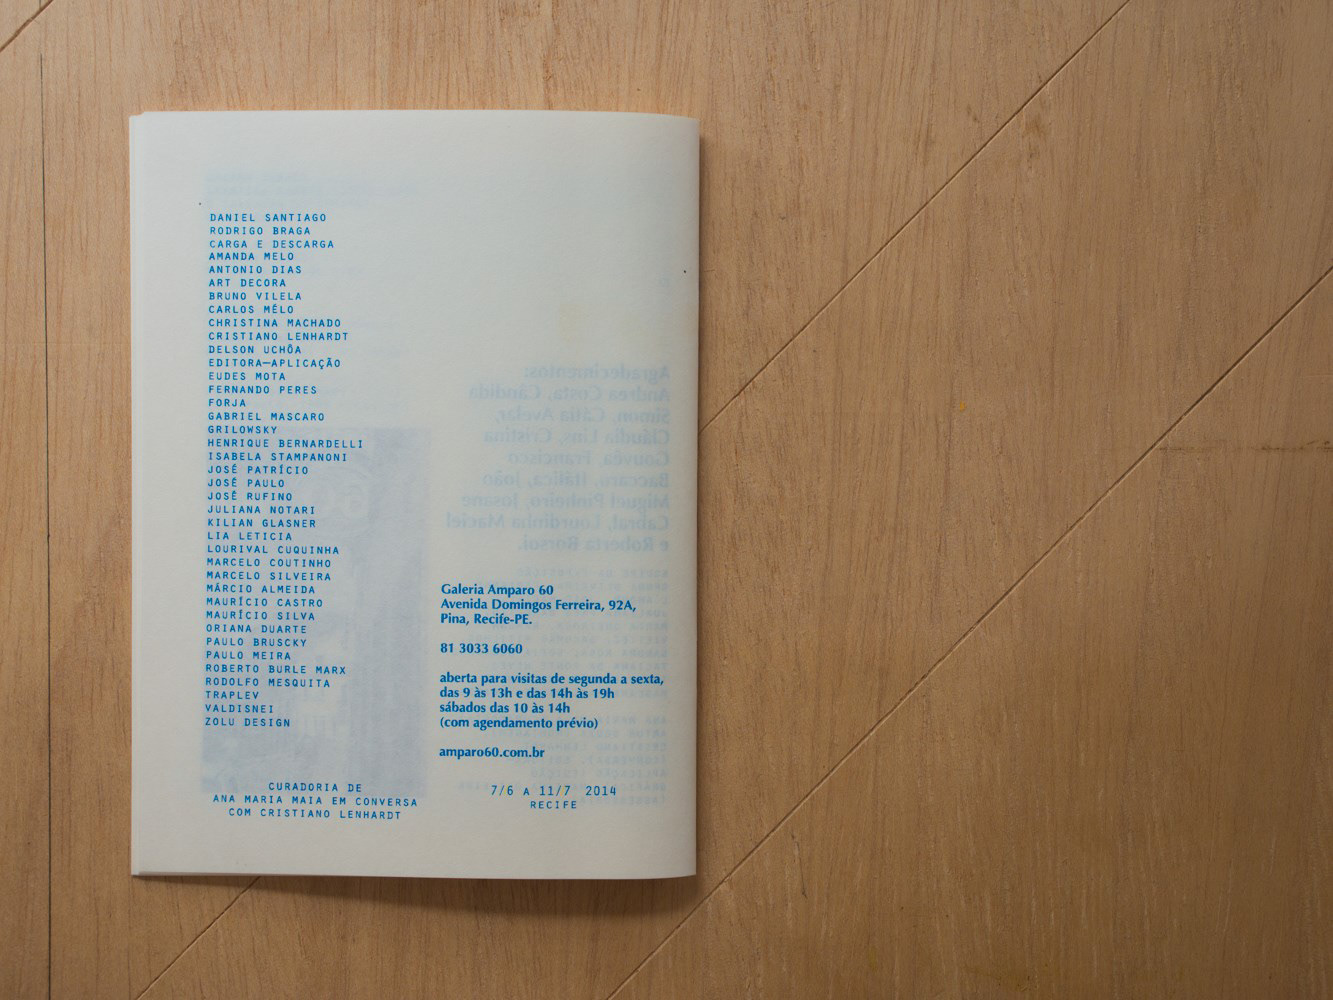 DANIEL SANTIAGO
RODRIGO BRAGA
CARGA E DESCARGA
AMANDA MELO
ANTONIO DIAS
ART DECORA
BRUNO VILELA
CARLOS MÉLO
CHRISTINA MACHADO
CRISTIANO LENHARDT
DELSON UCHÔA
EDITORA—APLICAÇÃO
EUDES MOTA
FERNANDO PERES
FORJA
GABRIEL MASCARO
GRILOWSKY
HENRIQUE BERNARDELLI
ISABELA STAMPANONI
JOSÉ PATRÍCIO
JOSÉ PAULO
JOSÉ RUFINO
JULIANA NOTARI
KILIAN GLASNER
LIA LETICIA
LOURIVAL CUQUINHA
MARCELO COUTINHO
MARCELO SILVEIRA
MÁRCIO ALMEIDA
MAURÍCIO CASTRO
MAURÍCIO SILVA
ORIANA DUARTE
PAULO BRUSCKY
PAULO MEIRA
ROBERTO BURLE MARX
RODOLFO MESQUITA
TRAPLEV
VALDISNEI
ZOLU DESIGN
CURADORIA DE
ANA MARIA MAIA EM CONVERSA
COM CRISTIANO LENHARDT
Agradecimentos:
Andrea Costa, Cândida
Simon, Cátia Avelar,
Cláudia Lins, Cristina
Gouvêva, Francisco
Baccaro, Itálica, João
Miguel Pinheiro, Josane
Cabral, Lourdinha Maciel
e Roberta Borsoi.
Galeria Amparo 60
Avenida Domingos Ferreira, 92A,
Pina, Recife-PE.
81 3033 6060
aberta para visitas de segunda a sexta,
das 9 às 13h e das 14h às 19h
sábados das 10 às 14h
(com agendamento prévio)
amparo60.com.br
7/6 A 11/7 2014
RECIFE